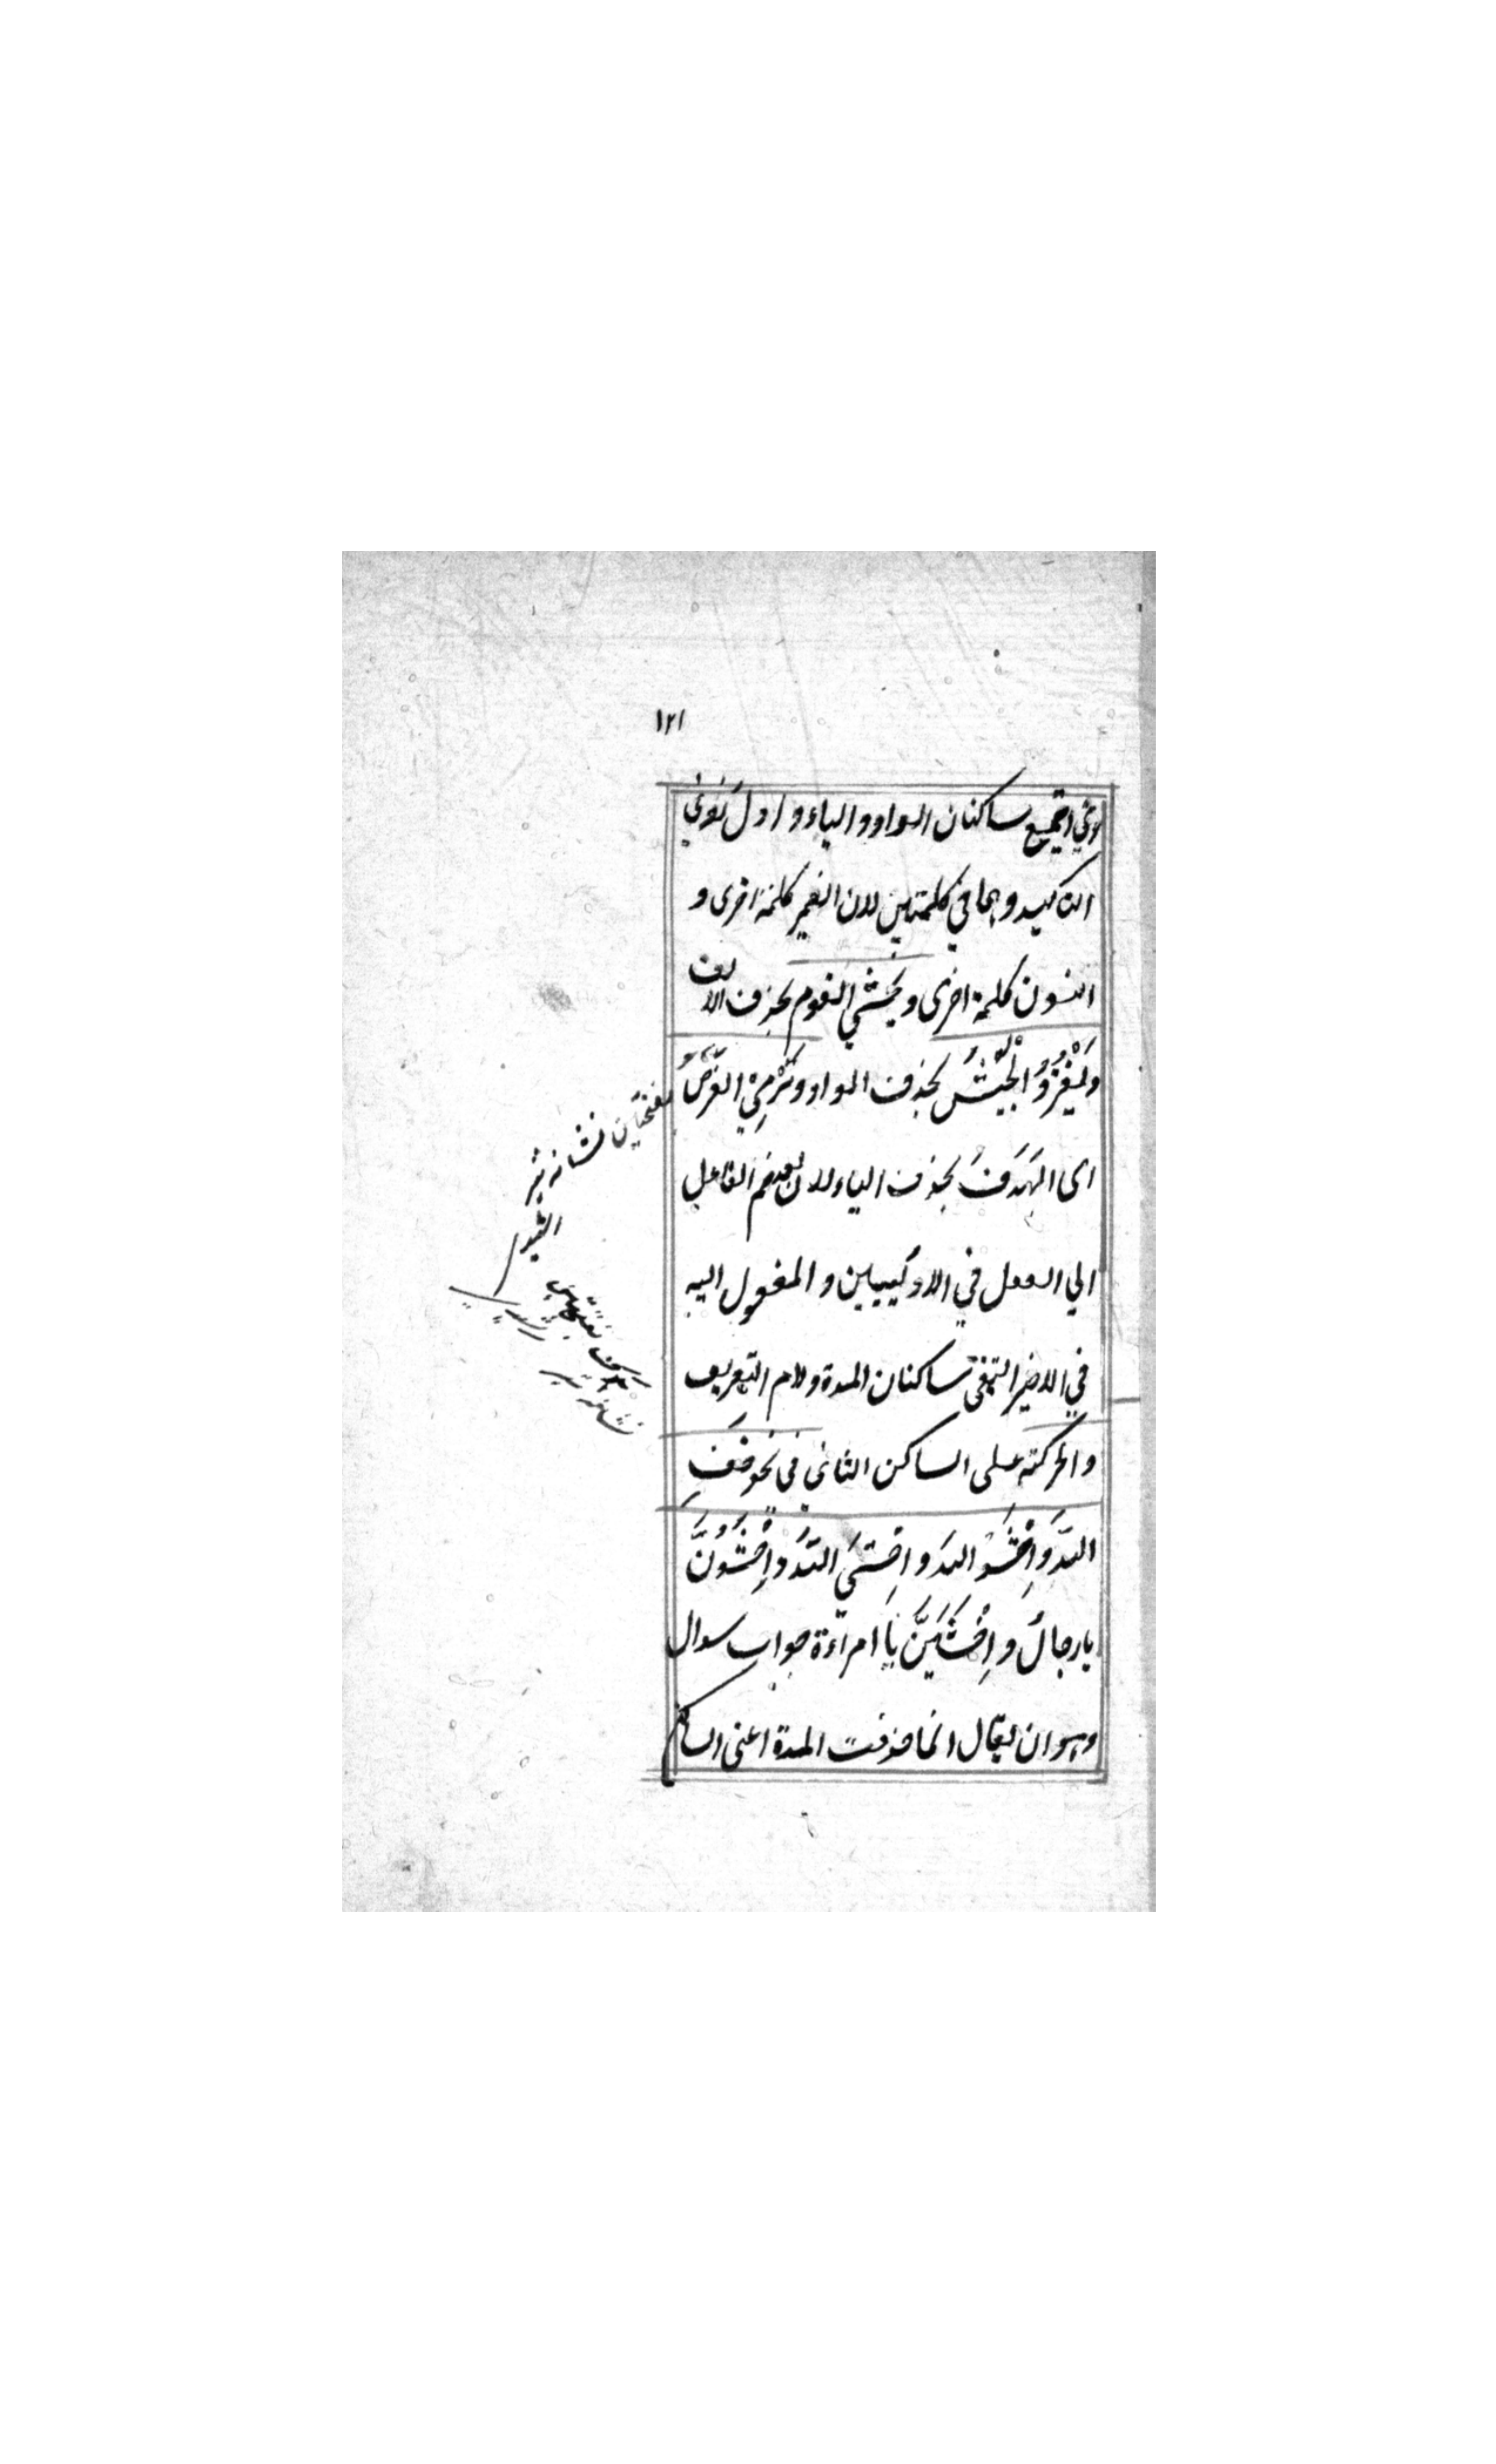 ١٢١
وفي اجتمع ساكنان الواو والياء و اول نوني
التاكيد وهما في كلمتين لان الضمير كلمة اخرى و
النون كلمة اخرى ويخشي القوم بحذف الالف
وَيَغْزُوُ الْجَيْشُ بحذف الواو وتَرْمِيْ الغَرَضَ
اى الهَدَفَ بحذف الياء لان بعضم الفاعل
الي الفعل في الاوليين و المفعول اليه
في الاخير التقى ساكنان المدة ولام التعريف
والحركته على الساكن الثاني في نحو خَفِ
اللهَ وَاِخْشَوُ اللهَ و اِخشَيِ اللهَ وَاِخْشَوُنَّ
يارجالُ و اِخْشَيَنَّ يا امراءة جواب سوال
وهو ان يقال انما حذفت المدة اعنى الساكن
بفتحتين نشانه تير